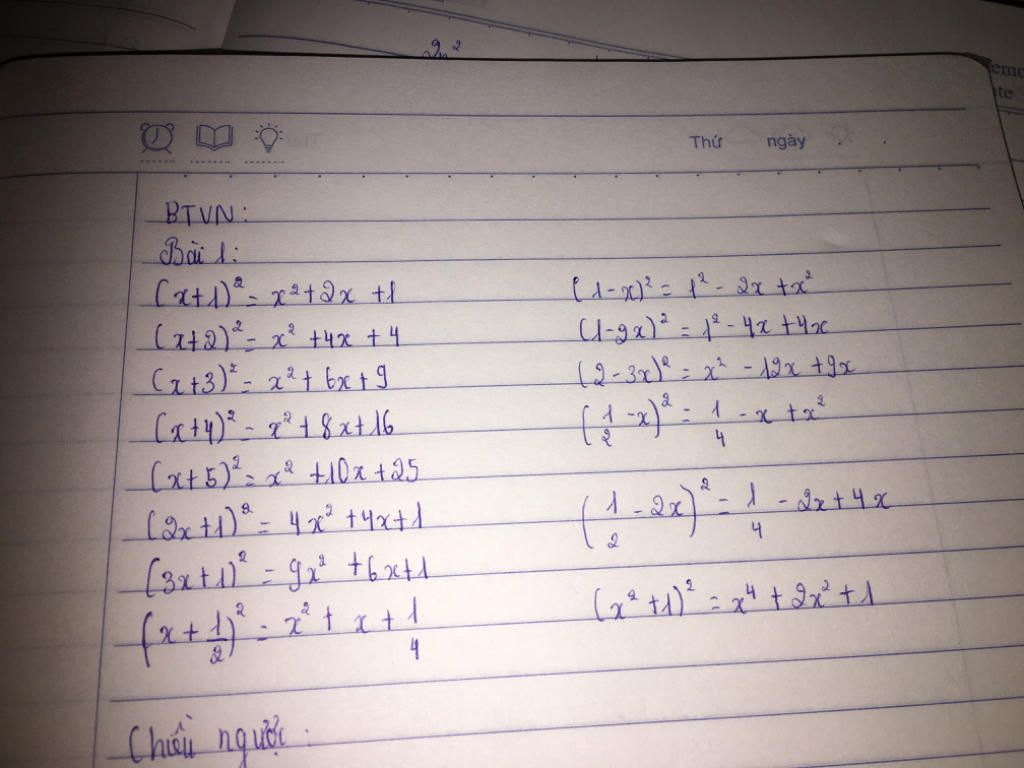 2x²
Thứ ngày
BTVN:
Bài 1:
(x+1)² = x² + 2x + 1
(x+2)² = x² + 4x + 4
(x+3)² = x² + 6x + 9
(x+4)² = x² + 8x + 16
(x+5)² = x² + 10x + 25
(2x+1)² = 4x² + 4x + 1
(3x+1)² = 9x² + 6x + 1
(x + 1/2)² = x² + x + 1/4
(1-x)² = 1² - 2x + x²
(1-2x)² = 1² - 4x + 4x
(2-3x)² = x² - 12x + 9x
(1/2 - x)² = 1/4 - x + x²
(1/2 - 2x)² = 1/4 - 2x + 4x
(x² + 1)² = x⁴ + 2x² + 1
Chiều ngược: